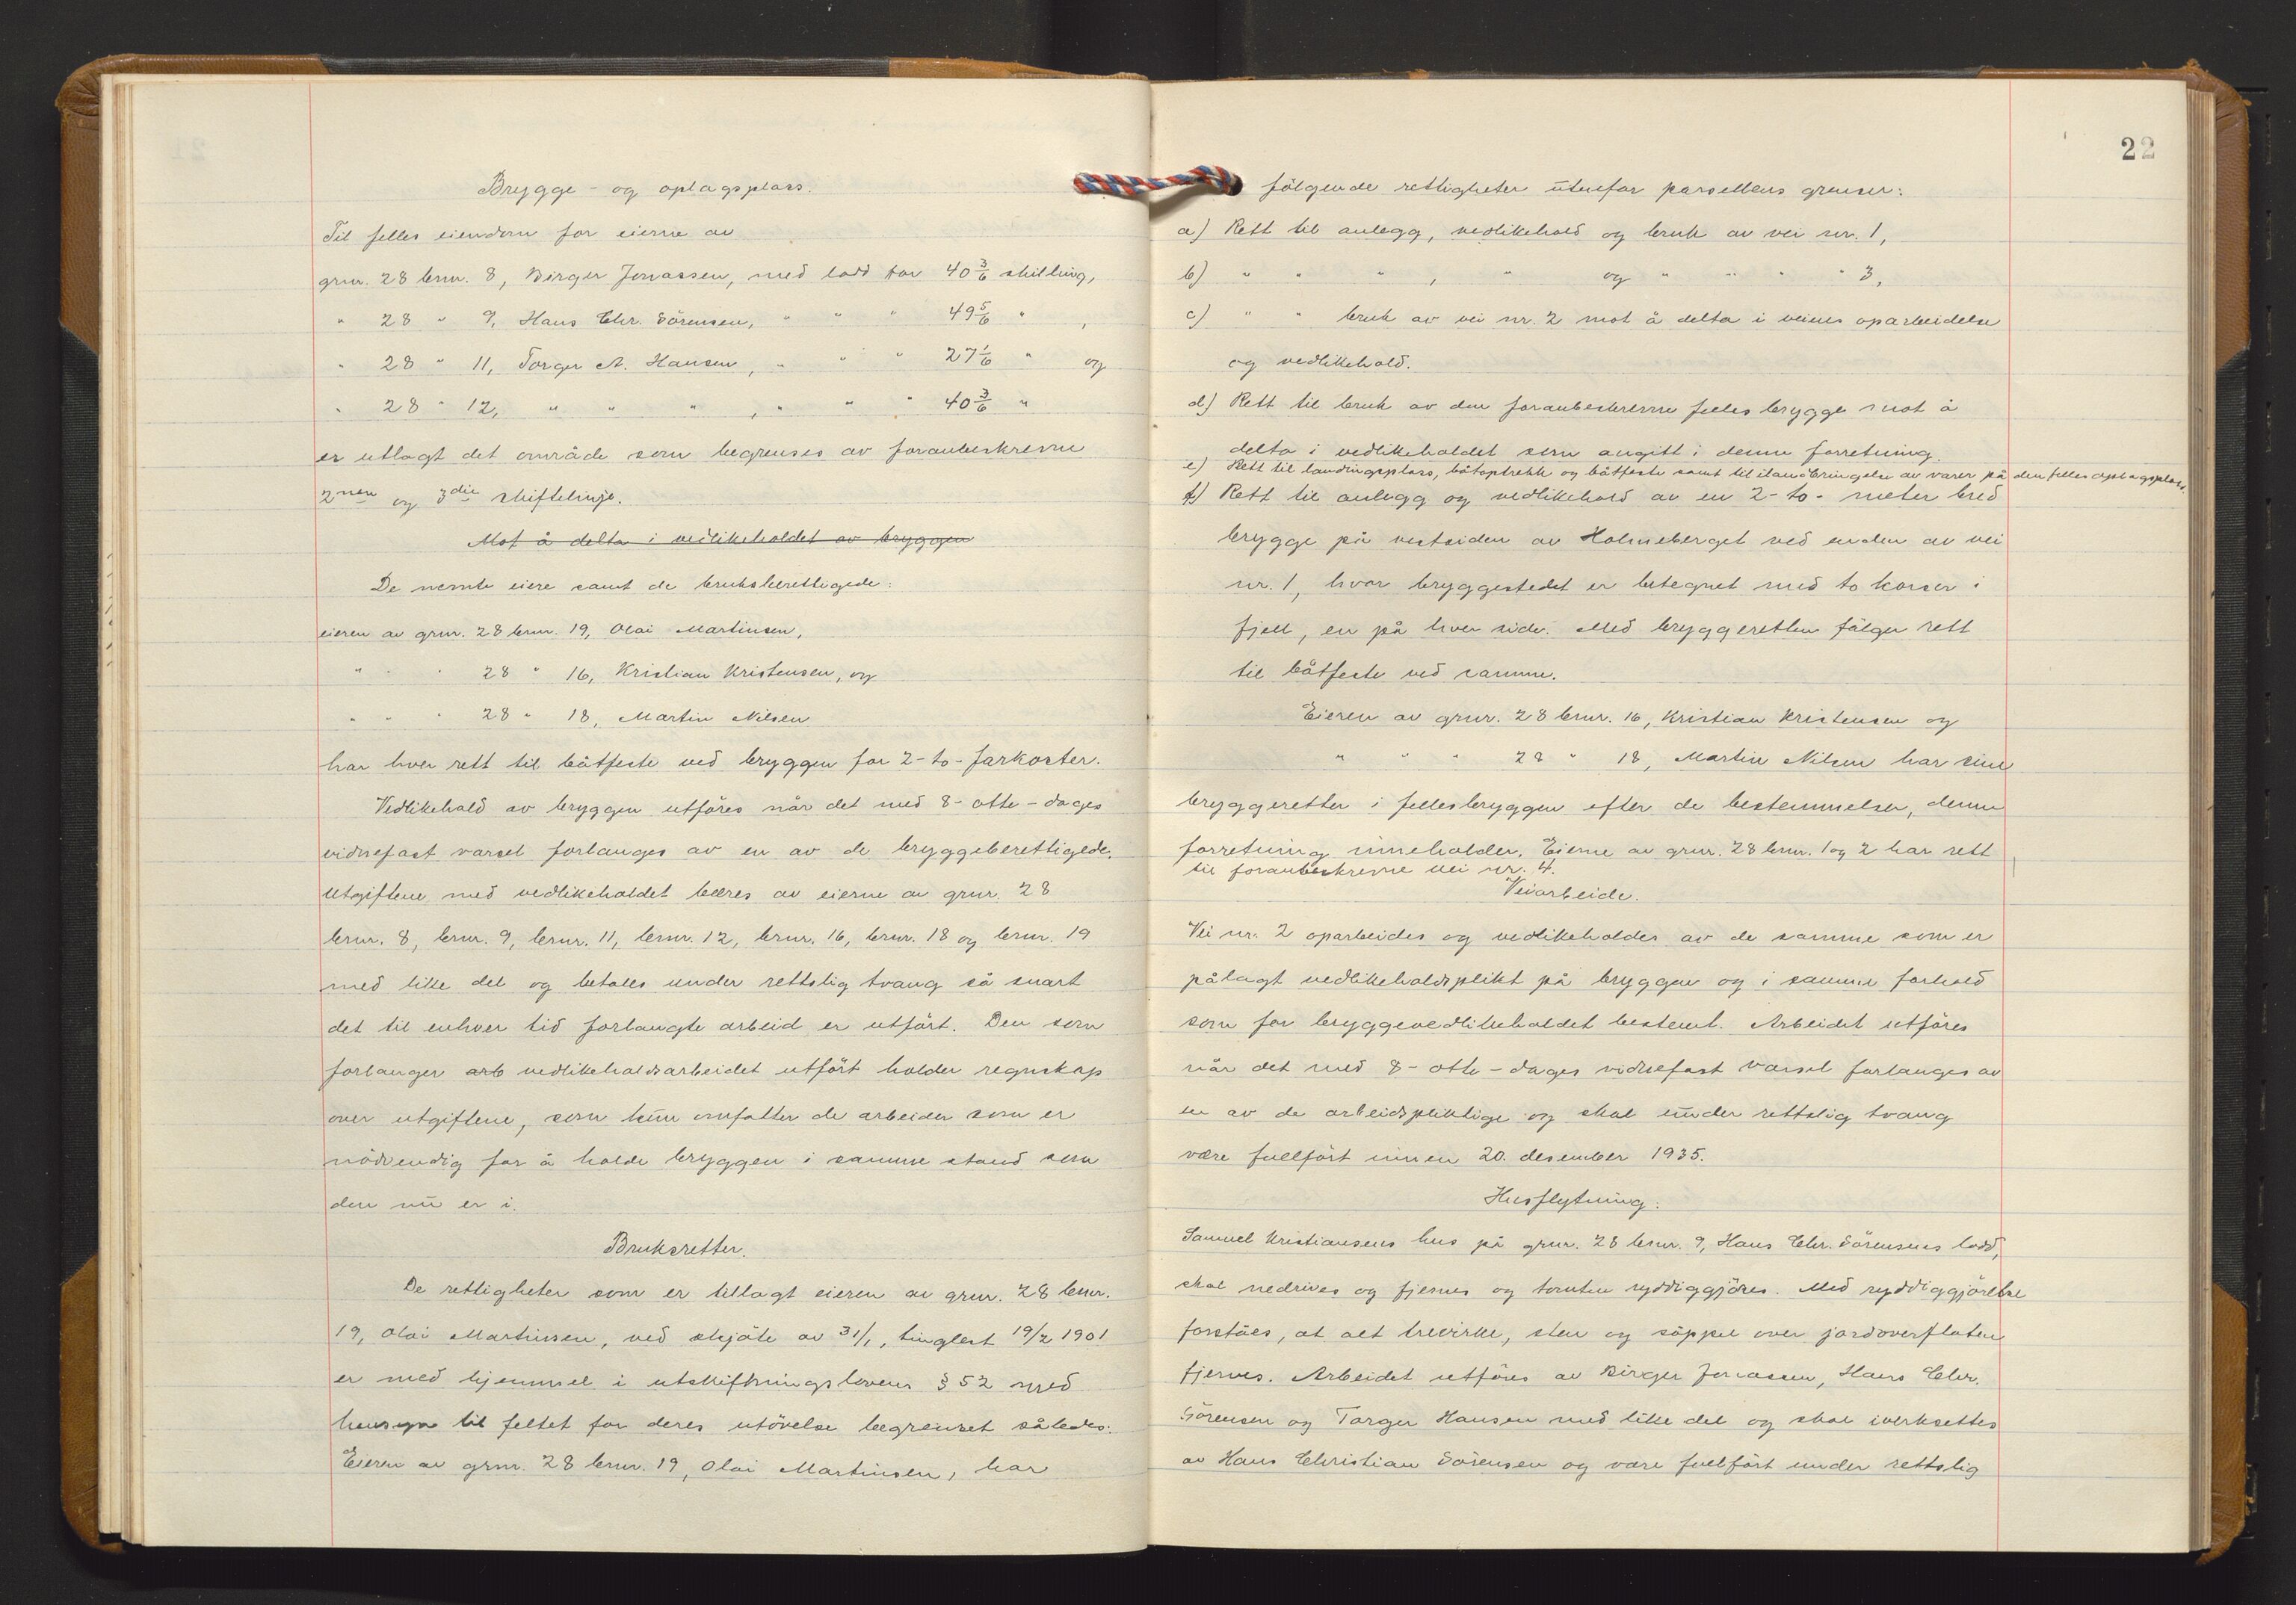 Brygge- og oplagsplass.
Til felles eiendom for eierne av
grnr. 28 brnr. 8, Birger Jonassen, med lodd for 40 3/6 skilling,
" 28 " 9, Hans Chr. Sörensen, " " " 49 5/6 " ,
" 28 " 11, Torger A. Hansen, " " " 27 1/6 " og
" 28 " 12, " " " , " " " 40 3/6 "
er utlagt det område som begrenses av foranbeskrevne
2nen og 3die skiftelinje.
Mot å delta i vedlikeholdet av bryggen
De nevnte eiere samt de bruksberettigede:
eieren av grnr. 28 brnr. 19, Olai Martinsen,
" " " 28 " 16, Kristian Kristensen, og
" " " 28 " 18, Martin Nilsen
har hver rett til båtfeste ved bryggen for 2-to-farkoster.
Vedlikehold av bryggen utföres når det med 8-otte-dages
vidnefast varsel forlanges av en av de bryggeberettigede.
Utgiftene med vedlikeholdet bæres av eierne av grnr. 28
brnr. 8, brnr. 9, brnr. 11, brnr. 12, brnr. 16, brnr. 18 og brnr. 19
med like del og betales under rettslig tvang så snart
det til enhver tid forlangte arbeid er utfört. Den som
forlanger arb vedlikeholdsarbeidet utfört holder regnskap
over utgiftene, som kun omfatter de arbeider som er
nödvendig for å holde bryggen i samme stand som
den nu er i.
Bruksretter.
De rettigheter som er tillagt eieren av grnr. 28 brnr.
19, Olai Martinsen, ved skjöte av 31/1, tinglest 19/2 1901
er med hjemmel i utskiftningslovens § 52 med
hensyn til feltet for deres utövelse begrenset således:
Eieren av grnr. 28 brnr. 19, Olai Martinsen, har
22
fölgende rettigheter utenfor parsellens grenser:
a) Rett til anlegg, vedlikehold og bruk av vei nr. 1,
b) " " " , " og " " " " 3,
c) " " bruk av vei nr. 2 mot å delta i veiens oparbeidelse
og vedlikehold.
d) Rett til bruk av den foranbeskrevne felles brygge mot å
delta i vedlikeholdet som angitt i denne forretning.
e) Rett til landingsplass, båtoptrekk og båtfeste samt til ilandbringelse av varer på den felles oplagsplass,
f) Rett til anlegg og vedlikehold av en 2-to-meter bred
brygge på vestsiden av Holmeberget ved enden av vei
nr. 1, hvor bryggestedet er betegnet med to korser i
fjell, en på hver side. Med bryggeretten fölger rett
til båtfeste ved samme.
Eieren av grnr. 28 brnr. 16, Kristian Kristensen og
" " " 28 " 18, Martin Nilsen har sine
bryggeretter i fellesbryggen efter de bestemmelser, denne
forretning inneholder. Eierne av grnr. 28 brnr. 1 og 2 har rett
til foranbeskrevne vei nr. 4.
Veiarbeide.
Vei nr. 2 oparbeides og vedlikeholdes av de samme som er
pålagt vedlikeholdsplikt på bryggen og i samme forhold
som for bryggevedlikeholdet bestemt. Arbeidet utföres
når det med 8-otte-dages vidnefast varsel forlanges av
en av de arbeidspliktige og skal under rettslig tvang
være fullfört innen 20. desember 1935.
Husflytning.
Samuel Kristiansens hus på grnr. 28 brnr. 9, Hans Chr. Sörensens lodd,
skal nedrives og fjernes og tomten ryddiggjöres. Med ryddiggjörelse
forståes, at alt trevirke, sten og söppel over jordoverflaten
fjernes. Arbeidet utföres av Birger Jonassen, Hans Chr.
Sörensen og Torger Hansen med like del og skal iverksettes
av Hans Christian Sörensen og være fullfört under rettslig